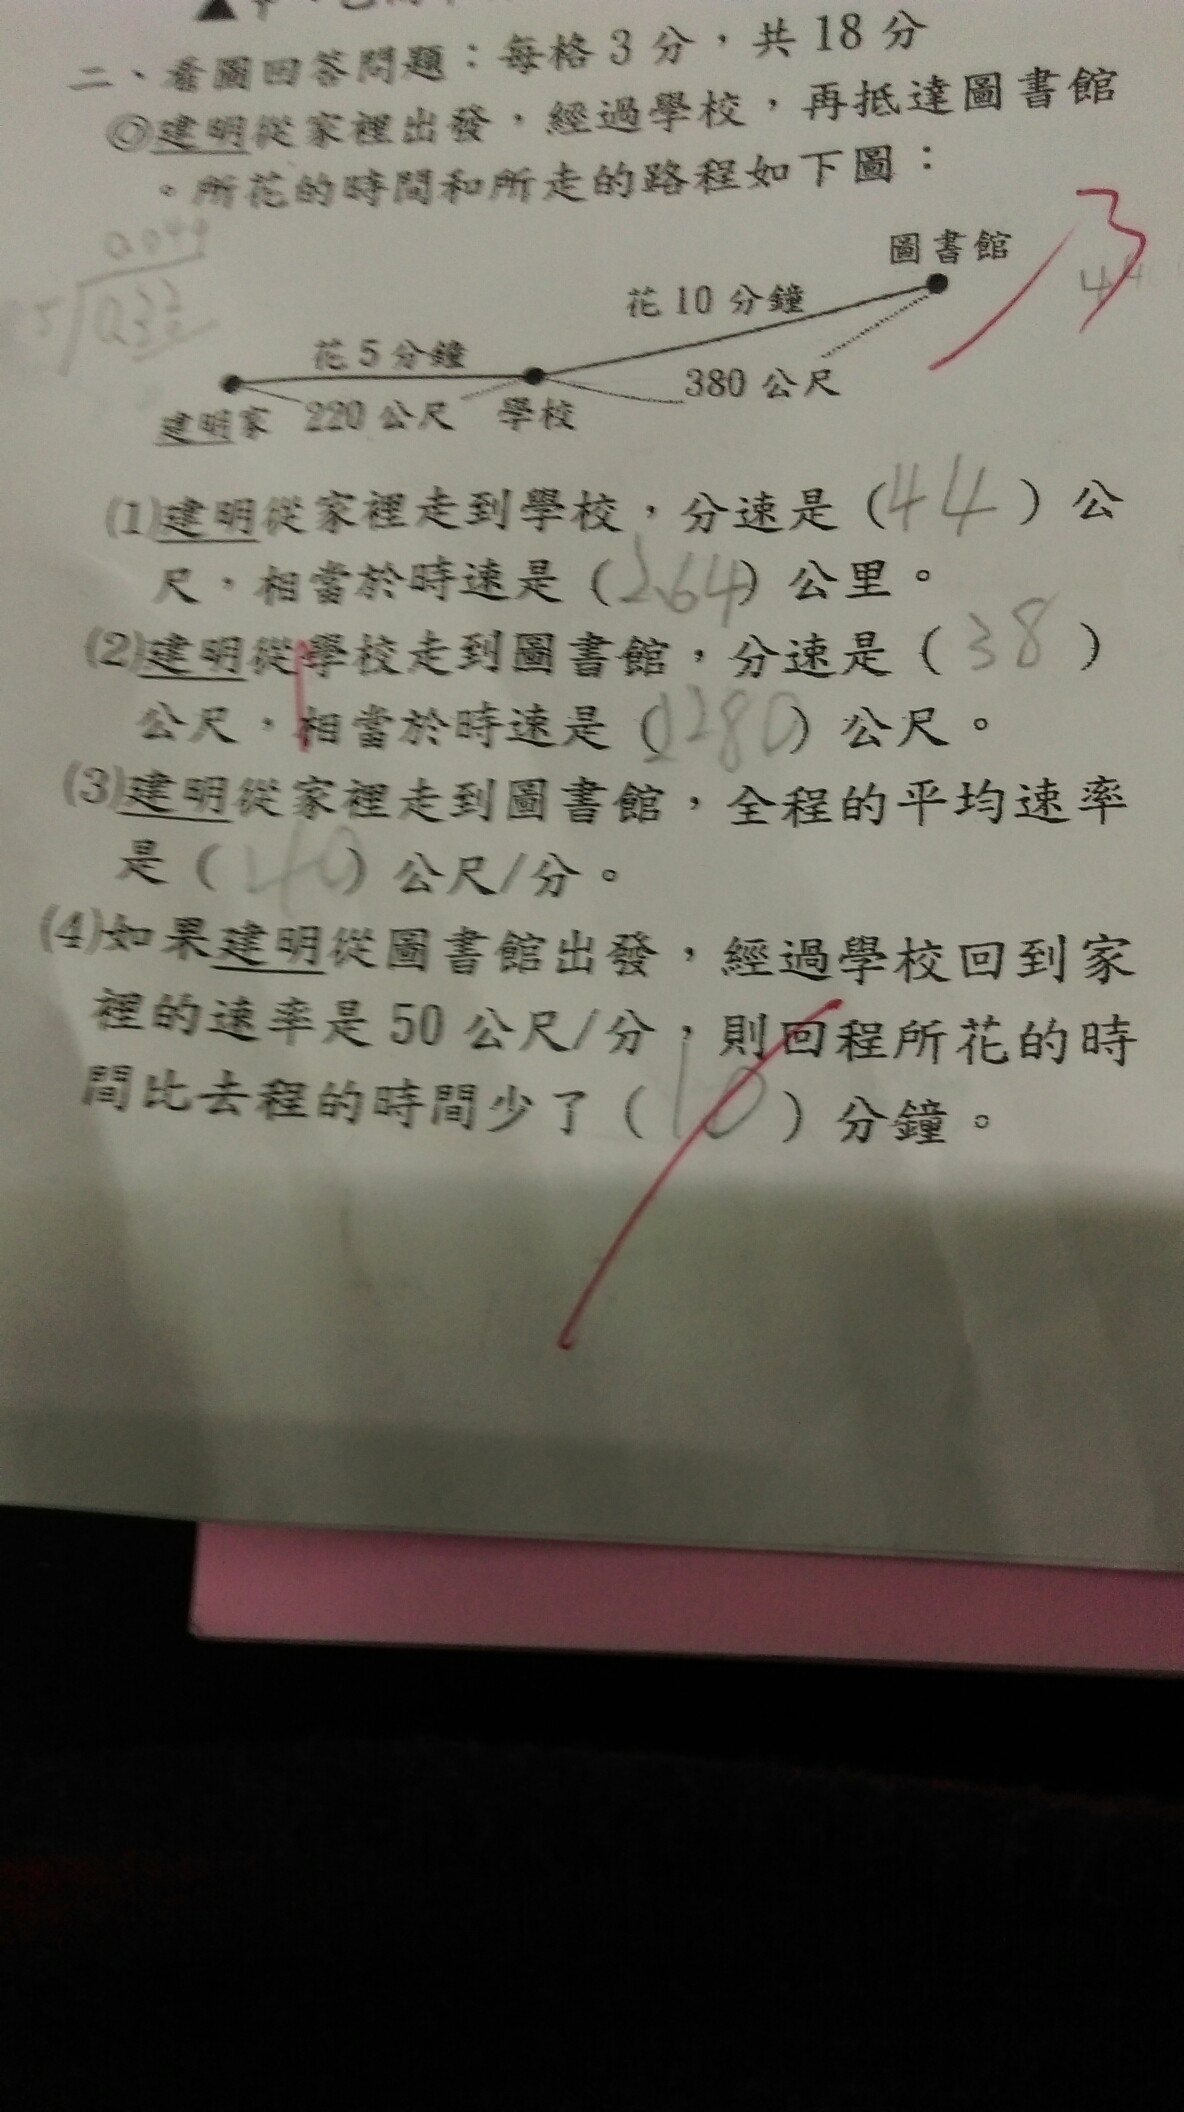 二、看圖回答問題：每格3分，共18分
◎建明從家裡出發，經過學校，再抵達圖書館
。所花的時間和所走的路程如下圖：
3
圖書館
花10分鐘
花5分鐘
380公尺
220公尺
學校
建明家
(1)建明從家裡走到學校，分速是（44）公
尺，相當於時速是（2.64）公里。
(2)建明從學校走到圖書館，分速是（38）
公尺，相當於時速是（2280）公尺。
(3)建明從家裡走到圖書館，全程的平均速率
是（40）公尺/分。
(4)如果建明從圖書館出發，經過學校回到家
裡的速率是50公尺/分，則回程所花的時
間比去程的時間少了（10）分鐘。